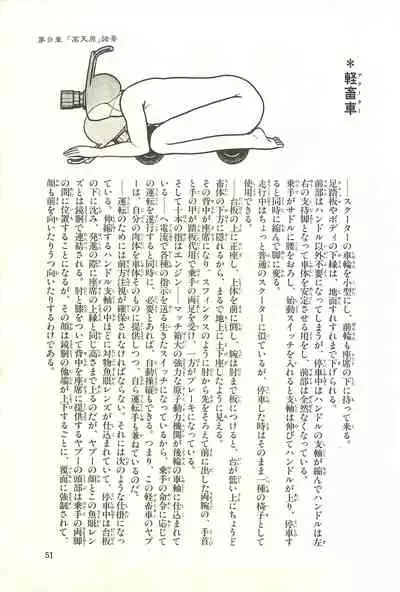 第9章「高天原」諸景
＊軽畜車
――スクーターの車輪を小型にし、前輪も座席の下に持って来る。
足踏板やボディの下縁は、地面すれすれまで下げられる。
前部はハンドル以外不要になってしまうが、停車中はハンドルの支軸が縮んでハンドルは左
右の支持脚となって車体を安定させる用をし、前部は全然なくなっている。
乗手がサドルに腰をおろし、始動スイッチを入れると支軸は伸びてハンドルが上り、停車す
ると同時に縮んで脚に変る。
走行中はちょっと普通のスクーターに似ているが、停車した時はそのまま一種の椅子として
使用できる。
台板の上に正座し、上体を前に倒し、腕は肘まで板につけると、台が低い上にちょうど
畜体の下方に隠れるから、まるで地上に土下座したように見える。
その背中が座席になり、スフィンクスのように肘から先をそろえて前に出した両腕の、手首
と手の甲が踏板代用で乗手の両足を受け、一方がブレーキになっている。
そして十本の指はエンジン――マッチ箱大の強力な原子動力機関が後輪の車軸に仕込まれて
いる――へ電流で各種の指示を送る生きたスイッチになっているから、乗手の命令に応じて
の運転を遂行すると同時に、必要とあれば、自動操縦もできる。つまり、この軽畜車のヤプ
ーは、自分の肉体を車体そのものに提供しつつ、自ら運転手も兼ねているのだ。
――運転のためには前方注視が確保されなければならない。それには次のような仕掛になっ
ている。伸縮するハンドル支軸の中ほどに対物魚眼レンズが仕込まれていて、停車中は台板
の下に沈み、発進の際に座席の上縁と同じ高さまで上るのだが、ヤプーの顔とこの魚眼レン
ズとは鏡胴で連結される。肘と膝をついて背中を座席に提供するヤプーの頭部は乗手の両脚
の間に位置することになるが、その顔は鏡胴の他端が上下するごとに、覆面に強制されて、
顔も前を向いたりうつ向いたりするわけである。
51